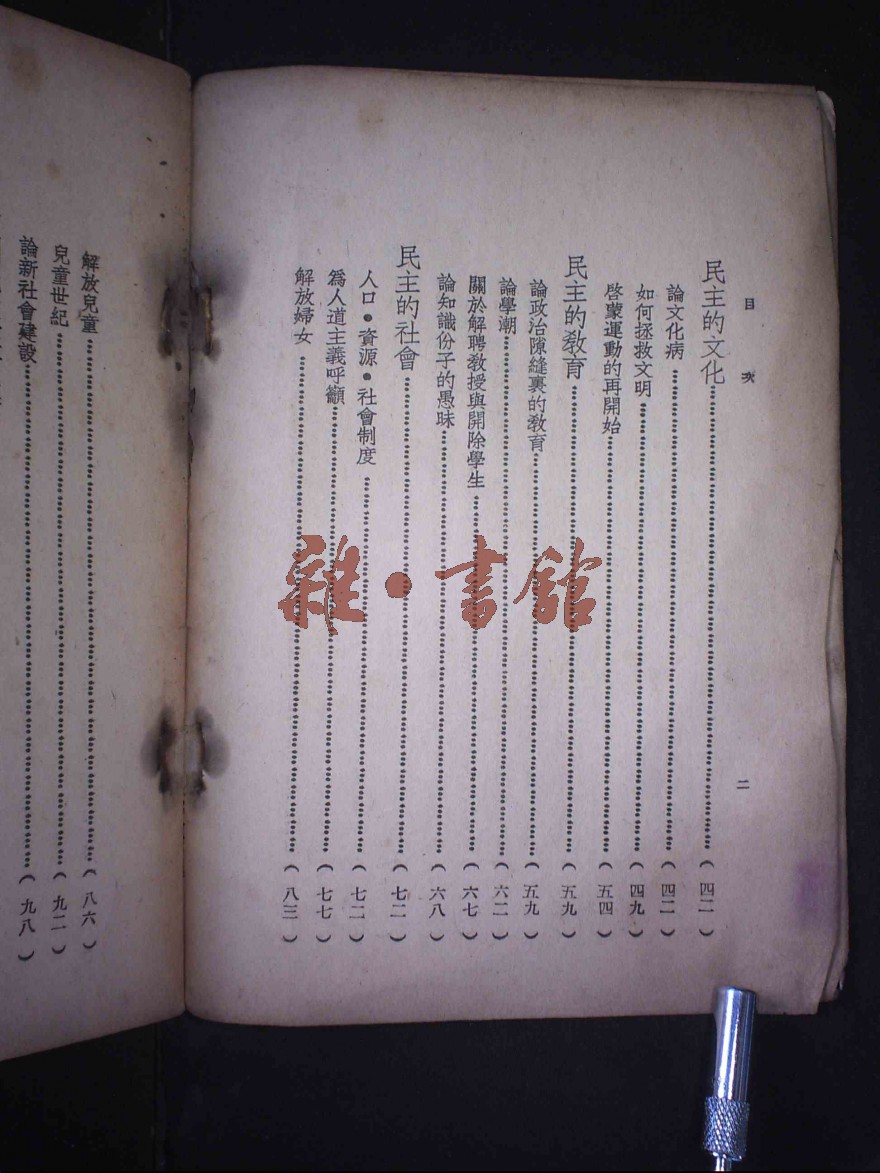 目次
二
民主的文化……(四二)
論文化病……(四二)
如何拯救文明……(四九)
啓蒙運動的再開始……(五四)
民主的教育……(五九)
論政治隙縫裏的教育……(五九)
論學潮……(六二)
關於解聘教授與開除學生……(六七)
論知識份子的愚昧……(六八)
民主的社會……(七二)
人口•資源•社會制度……(七二)
爲人道主義呼籲……(七七)
解放婦女……(八三)
解放兒童……(八六)
兒童世紀……(九二)
論新社會建設……(九八)
雜·書館